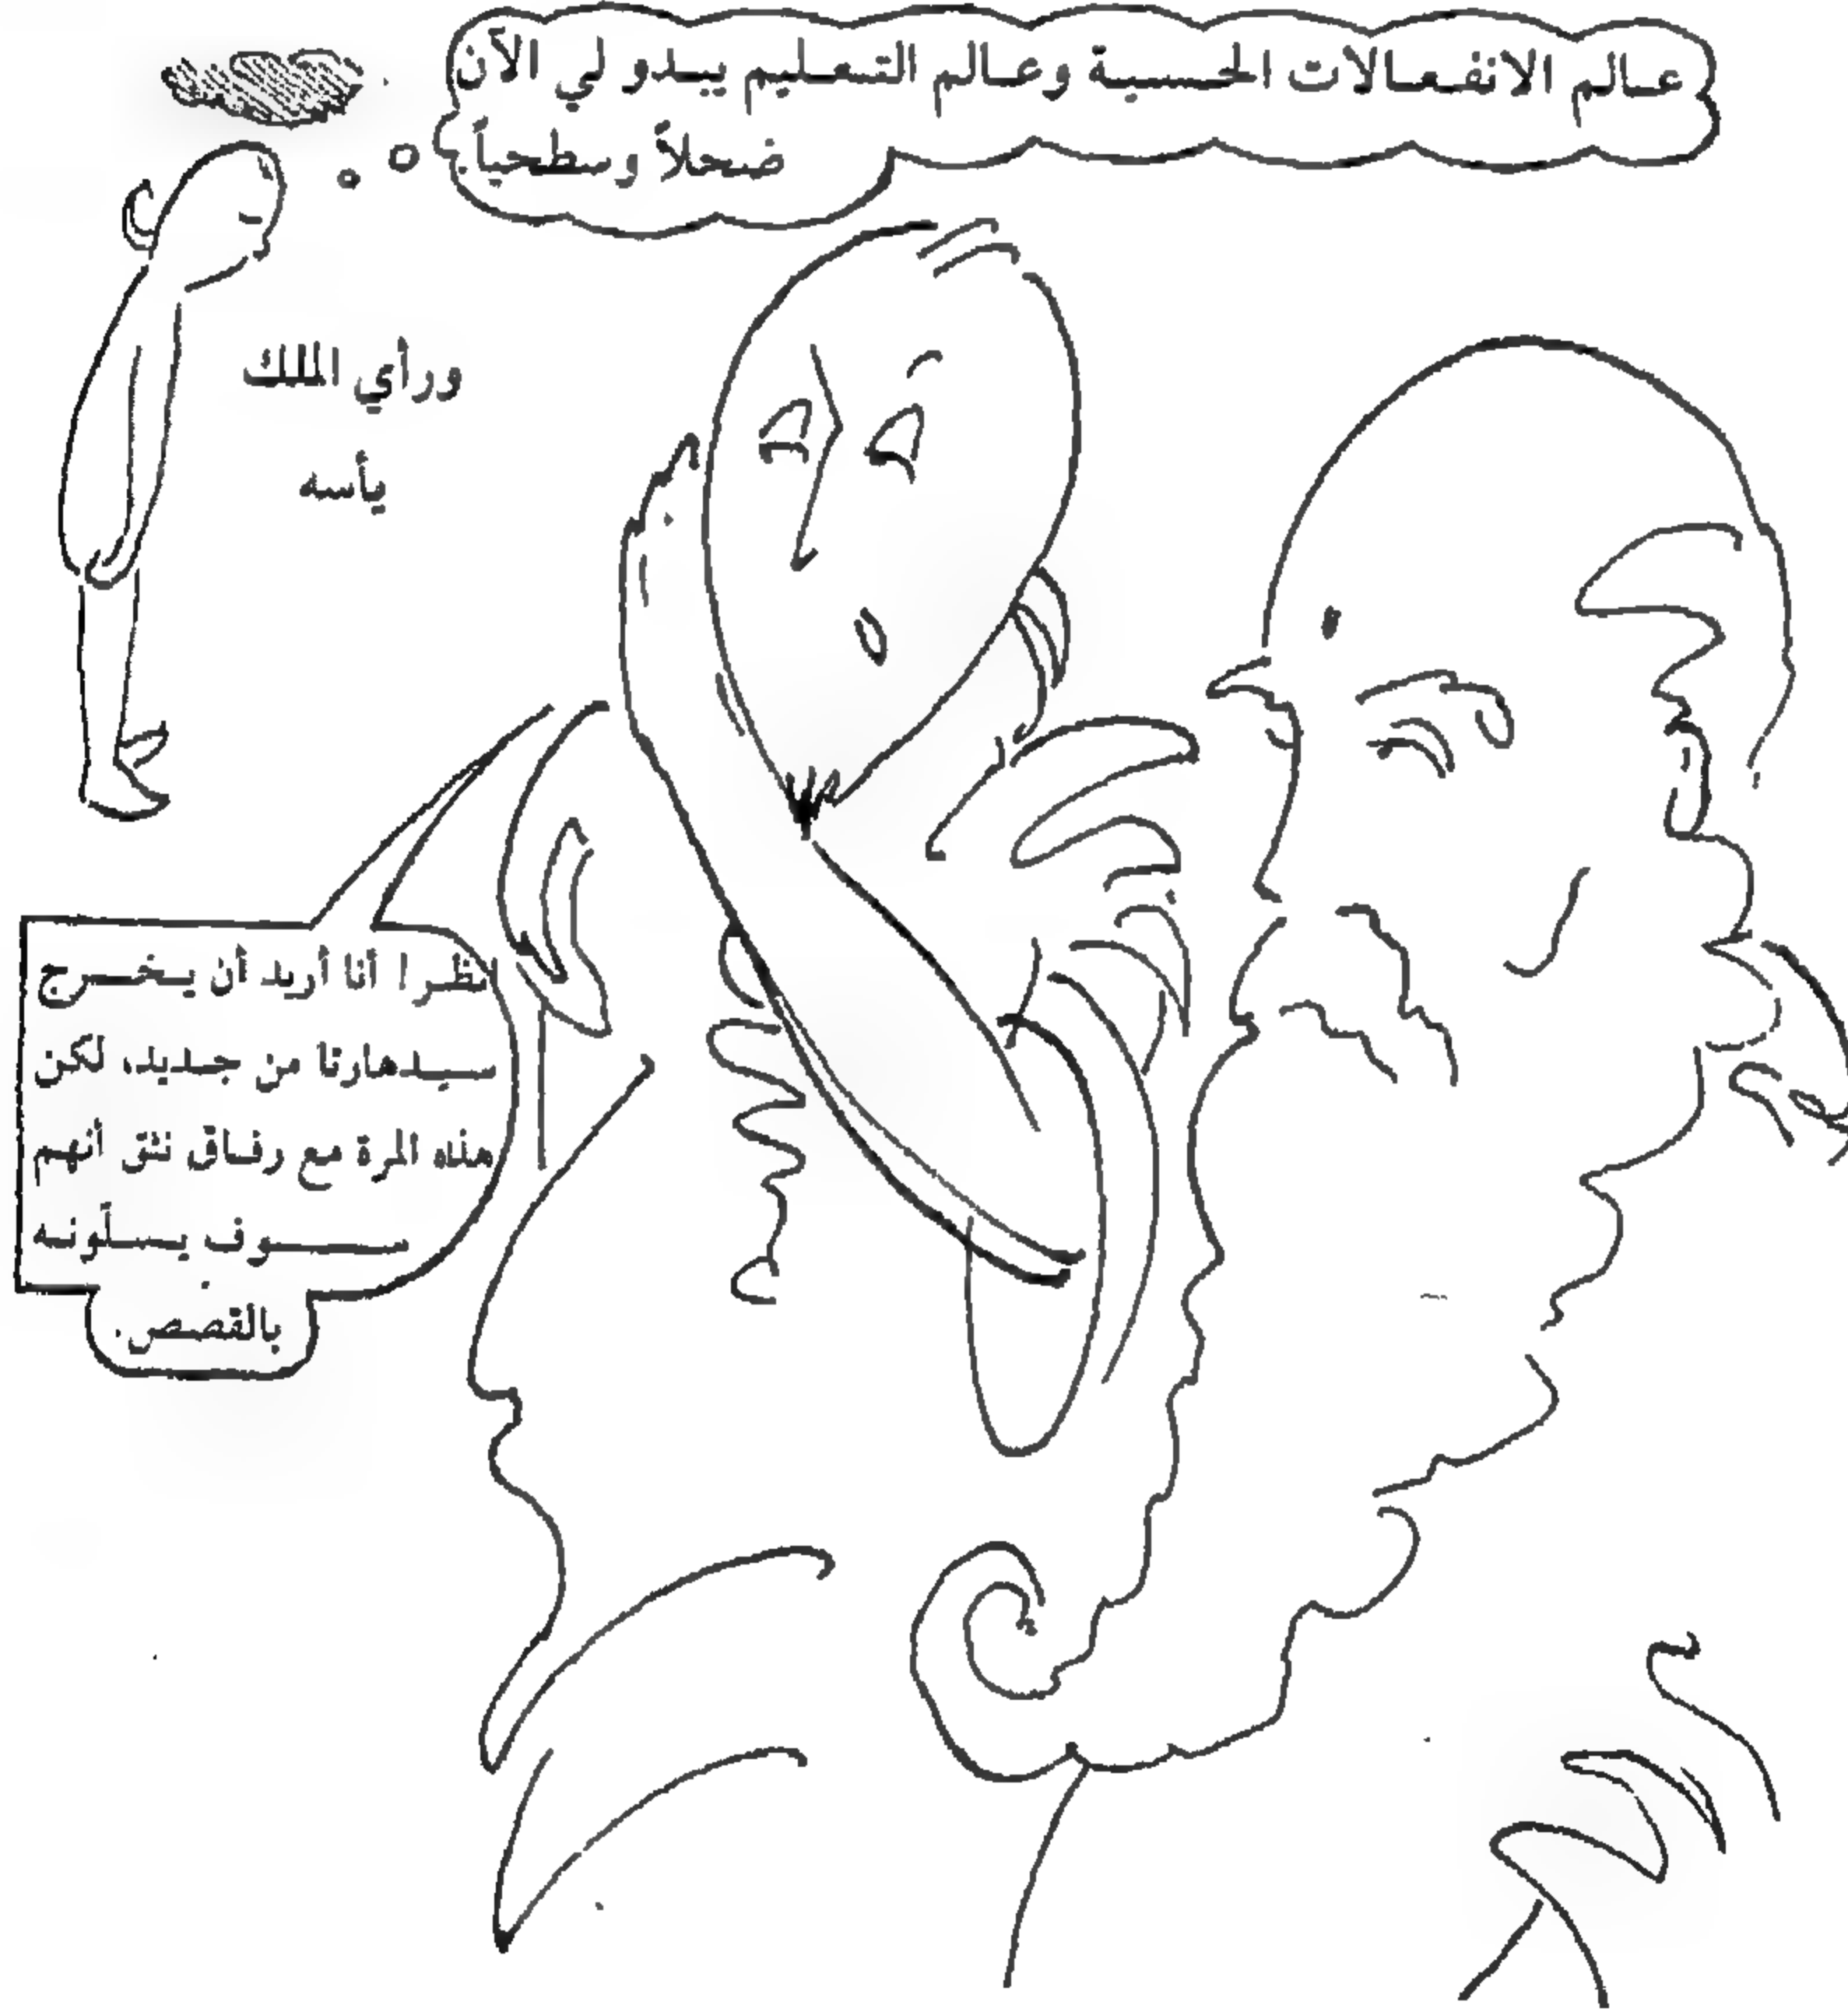 عالم الانفعالات الحسية وعالم التعليم يبدو لي الآن
ضحلاً وسطحياً.
ورأي الملك
يأسه
انظرا أنا أريد أن يخرج
سيدهارتا من جديد، لكن
هذه المرة مع رفاق نثق أنهم
سوف يسلّونه
بالقصص.